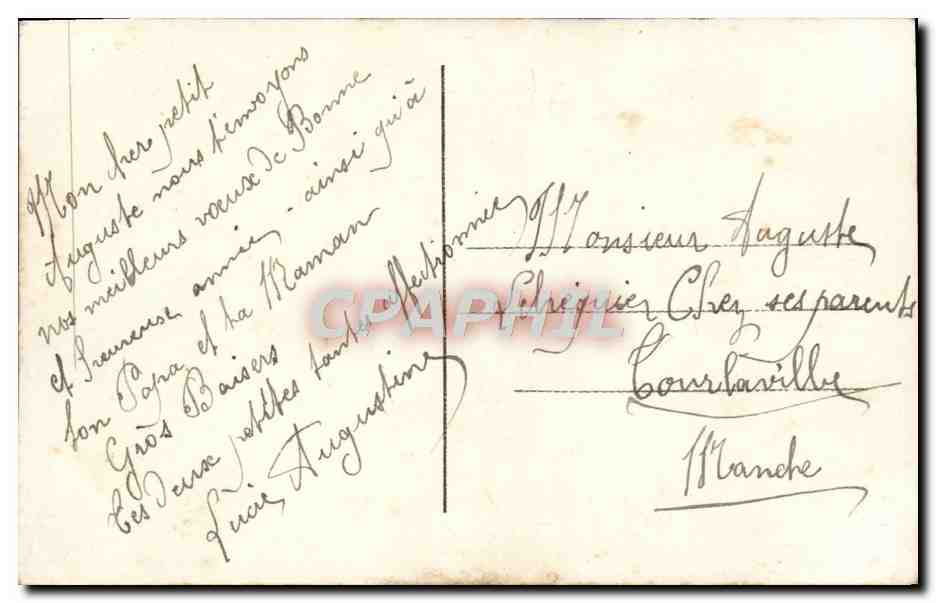 Mon cher petit
Auguste nous t'envoyons
nos meilleurs vœux de Bonne
et heureuse année ainsi qu'à
ton Papa et ta Maman
Grôs Baisers
tes deux petites tantes affectionnée
Lucie, Augustine
Monsieur Auguste
Chez ses parents
Tourlaville
Manche
CPAPHIL